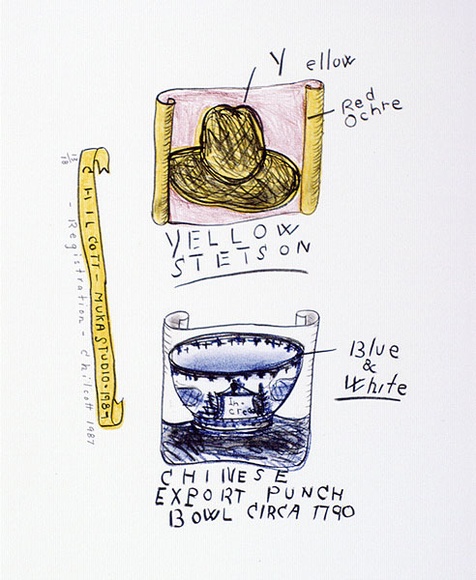 Yellow
Red
Ochre
YELLOW
STETSON
CHILCOTT - MUKA STUDIO. 1987
- Registration - Chilcott 1987
Blue
&
White
CHINESE
EXPORT PUNCH
BOWL CIRCA 1790